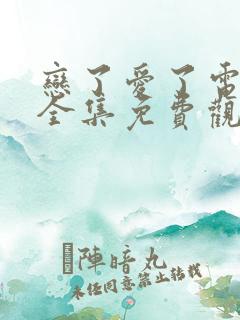 戀了愛了電
全集免費觀
陣暗丸
未經同意禁止轉載